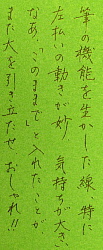 筆の機能を生かした線 特に
左払いの動きが妙 気持ちが大きく
なあ、「このままで」と入れたことが
また大を引き立たせ おしゃれ!!